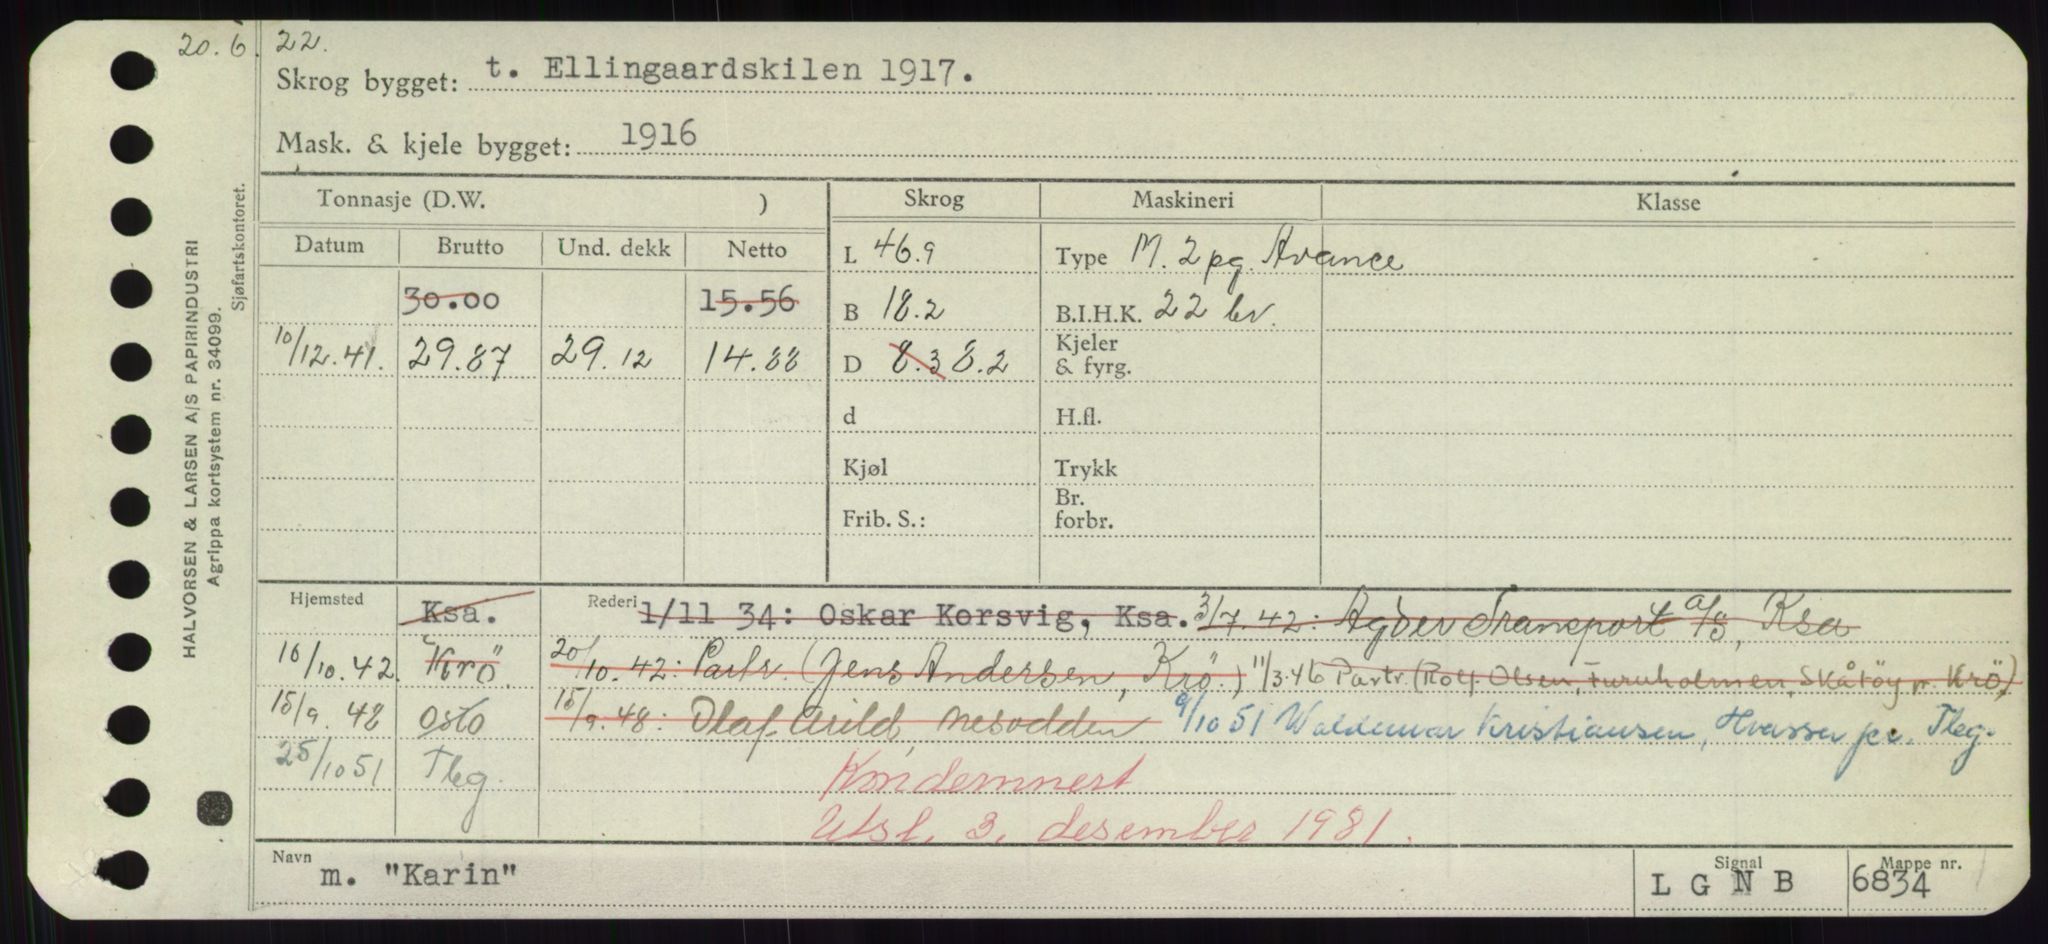 20. 6. 22.
Skrog bygget: t. Ellingaardskilen 1917.
Mask. & kjele bygget: 1916
Tonnasje (D.W. ) Skrog Maskineri Klasse
Datum Brutto Und. dekk Netto L 46.9 Type M. 2 pg. Avance
30.00 15.56 B 18.2 B.I.H.K. 22 bv.
10/12.41. 29.87 29.12 14.88 D 8.3 8.2 Kjeler & fyrg.
d H.fl.
Kjøl Trykk
Frib. S.: Br. forbr.
Hjemsted Ksa. Rederi 1/11 34: Oskar Korsvig, Ksa. 3/7.42: Agder Transport A/S, Ksa
16/10.42. Krö. 20/10.42: Partr. (Jens Andersen, Krö.) 11/3.46 Partr. (Rolf Olsen, Furuholmen, Skåtöy pr. Krö)
15/9.48 Oslo 15/9.48: Olaf Arild, Nesodden 9/10 51 Waldemar Kristiansen, Hvasser pr. Tbg.
25/10 51 Tbg. Kondemnert
Utsl. 3. desember 1981.
Navn m. "Karin" Signal L G N B Mappe nr. 6834
HALVORSEN & LARSEN A/S PAPIRINDUSTRI
Agrippa kortsystem nr. 34099.
Sjøfartskontoret.